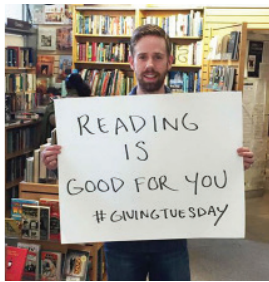 READING
IS
GOOD FOR YOU
#GIVINGTUESDAY